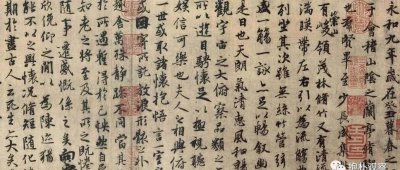 永和九年歲在癸丑暮春之
于會稽山陰之蘭亭脩
也羣賢畢至少長咸集
崇山
有峻領茂林脩竹又有清
湍暎帶左右引以為流
列坐其次雖無絲竹管
盛一觴一詠亦足以暢敘幽
是日也天朗氣清惠風和
觀宇宙之大俯察品類之
所以遊目騁懷足以極視聽
娛信可樂也夫人之相與
一世或取諸懷抱悟言一室
或因寄所託放浪形骸之外
趣舍萬殊靜躁不同當其
於所遇暫得於己怏然自
知老之將至及其所之既
隨事遷感慨係之矣向之
欣俛仰之間以為陳迹
能不以之興懷況脩短隨化
期於盡古人云死生亦大矣
抱朴观察